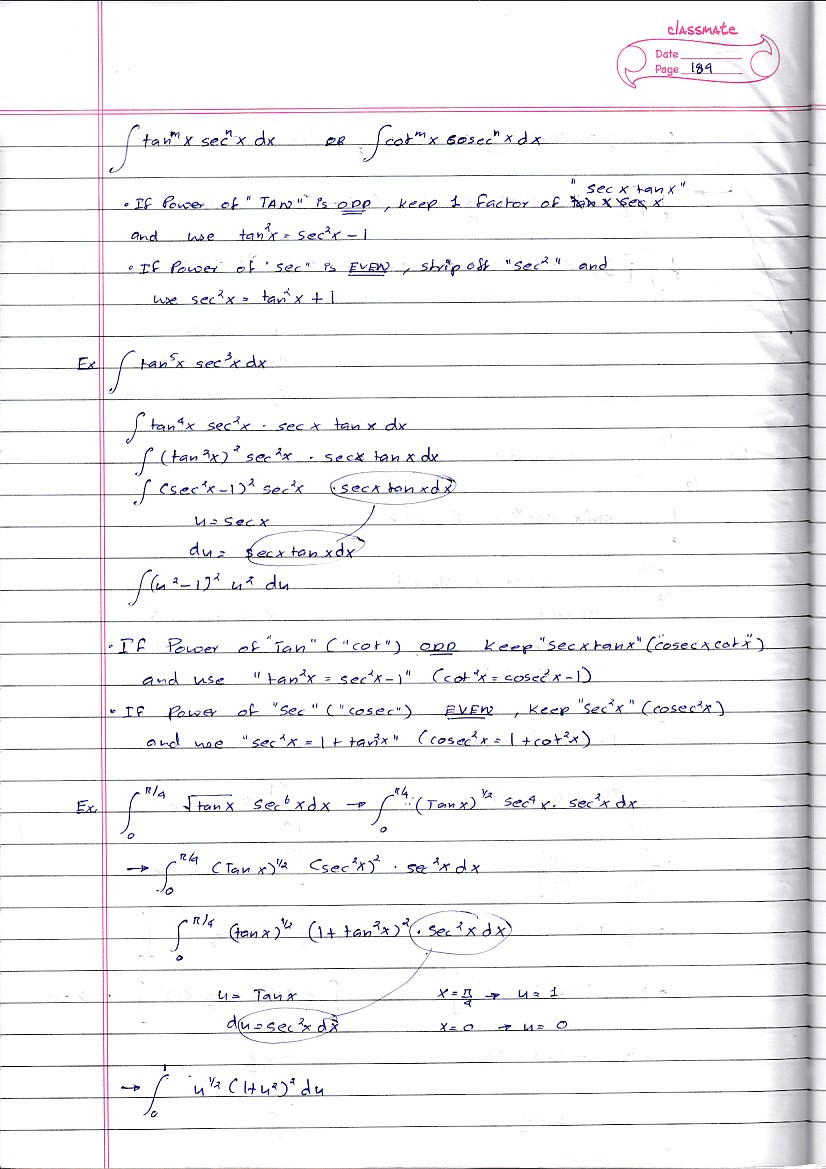 classmate
Date
Page 189
∫ tanᵐx secⁿx dx OR ∫ cotᵐx cosecⁿx dx
• If Power of "TAN" is ODD, keep 1 factor of "sec x tan x"
and use tan²x = sec²x - 1
• If Power of "sec" is EVEN, strip off "sec²" and
use sec²x = tan²x + 1
Ex ∫ tan⁵x sec³x dx
∫ tan⁴x sec²x · sec x tan x dx
∫ (tan²x)² sec²x · secx tan x dx
∫ (sec²x-1)² sec²x · secx tan x dx
u = sec x
du = secx tan x dx
∫ (u²-1)² u² du
• If Power of "Tan" ("cot") ODD keep "secxtanx" (cosecxcotx)
and use "tan²x = sec²x-1" (cot²x = cosec²x-1)
• If Power of "sec" ("cosec") EVEN, keep "sec²x" (cosec²x)
and use "sec²x = 1 + tan²x" (cosec²x = 1 + cot²x)
Ex. ∫₀^π/4 √tan x sec⁶x dx → ∫₀^π/4 (Tanx)^1/2 sec⁴x · sec²x dx
→ ∫₀^π/4 (Tan x)^1/2 (sec²x)² · sec²x dx
∫₀^π/4 (tanx)^1/2 (1 + tan²x)² · sec²x dx
u = Tan x x = π/4 → u = 1
du = sec²x dx x = 0 → u = 0
→ ∫₀^1 u^1/2 (1+u²)² du